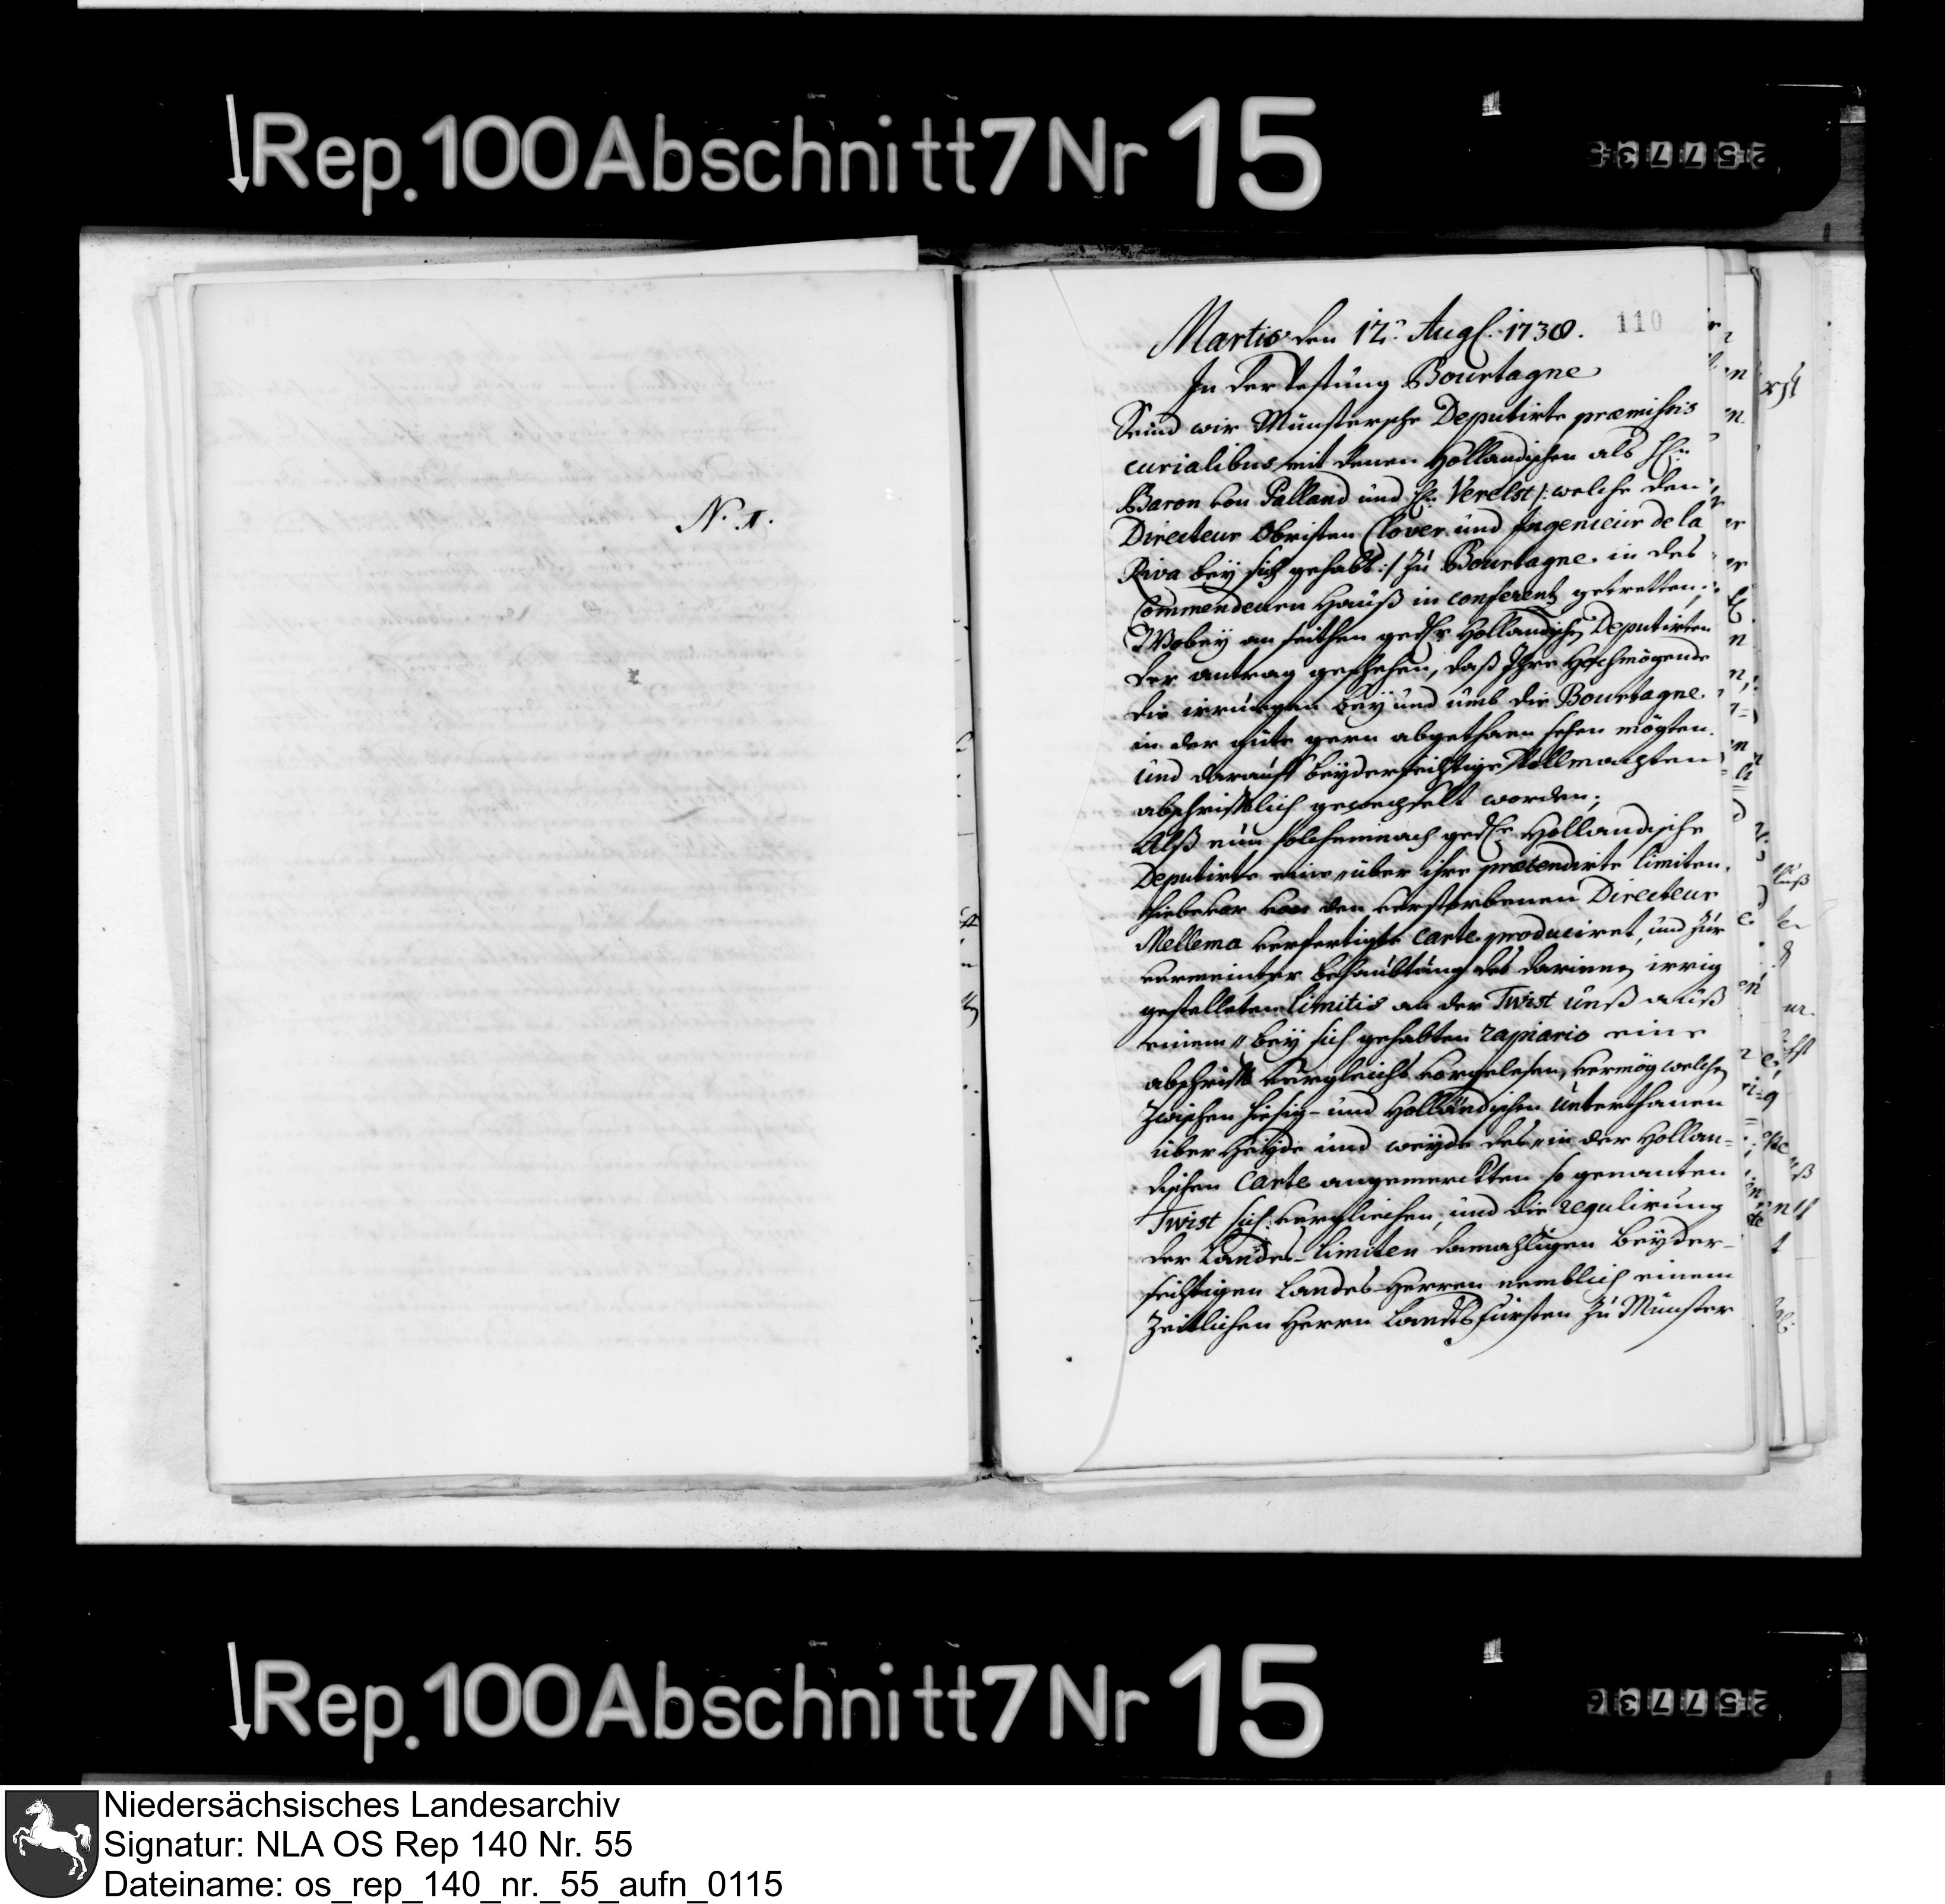 Rep. 100 Abschnitt 7 Nr 15
N. 1.
110
Martis den 12. Aug. 1738.
In der Vestung Bourtagne
Seind wir Münstersche Deputirte præmissis
curialibus mit denen Holländischen als H.
Baron von Palland und H. Verelst /: welche den
Directeur Obristen Clover und Ingenieur de la
Riva bey sich gehabt :/ zu Bourtagne in des
Commendeuren Hauß in conferentz getretten;
Wobey an seithen ged. Holländischen Deputirten
der antrag geschehen, daß Ihre Hochmögende
die irrungen bey und umb die Bourtagne
in der güte gern abgethaen sehen mögten
und darauf beyderseithige Vollmachten
abschrifftlich gewechselt worden;
Alß nun solchemnach ged. Holländische
Deputirte eine über ihre prætendirte limiten
hiebevor von den verstorbenen Directeur
Mellema verfertigte Carte produciret, und zur
vermeinter behaubtung des darinnen irrig
gestelleten limitis an der Twist unß auß
einem bey sich gehabten rapiario eine
abschrifft vergleichs vorgelesen, vermög welchen
zwischen hiesig- und Holländischen Unterthanen
über Heyde und weyde des in der Hollän=
dischen Carte angemerckten so genanten
Twist sich verglichen, und die regulirung
der Landes-limiten damahligen beyder-
seithigen Landes-Herren nemblich einem
Zeitlichen Herrn Landtsfürsten zu Münster
Rep. 100 Abschnitt 7 Nr 15
Niedersächsisches Landesarchiv
Signatur: NLA OS Rep 140 Nr. 55
Dateiname: os_rep_140_nr._55_aufn_0115